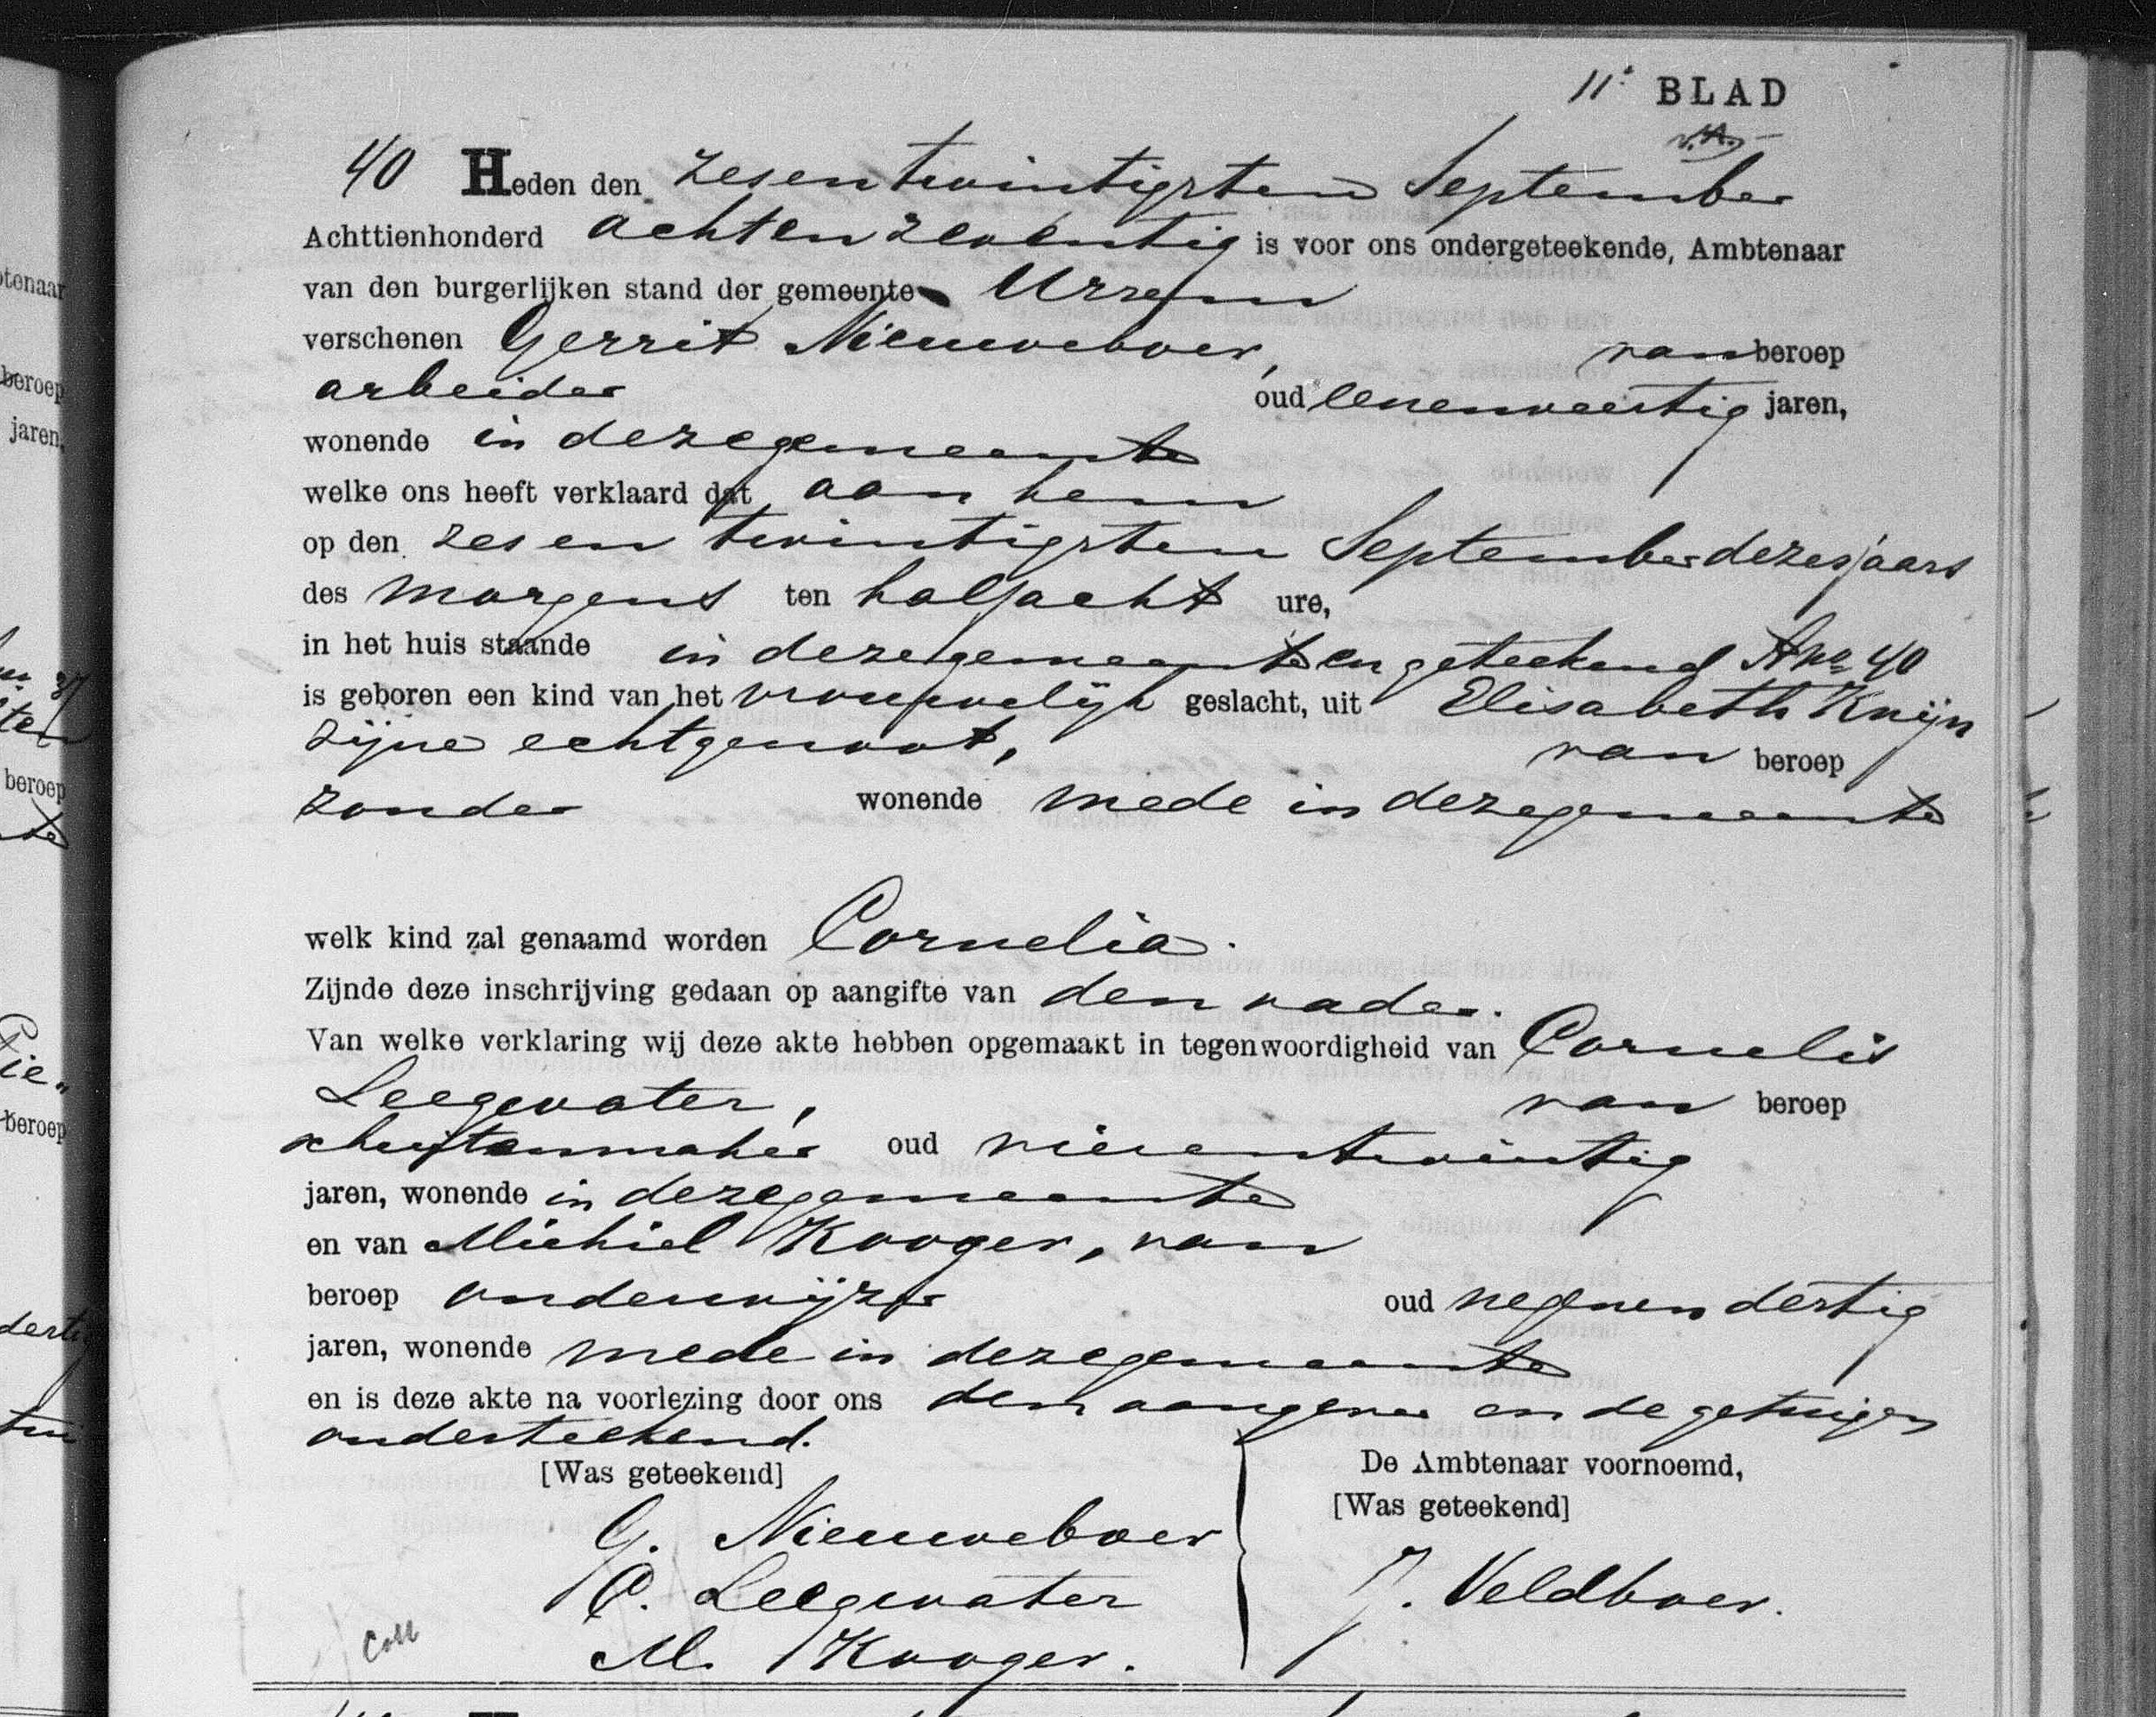 11e BLAD
40 Heden den zesentwintigsten September
Achttienhonderd achtenzeventig is voor ons ondergeteekende, Ambtenaar
van den burgerlijken stand der gemeente Ursem
verschenen Gerrit Nieuweboer, van beroep
arbeider oud eenenveertig jaren,
wonende in dezegemeente
welke ons heeft verklaard dat aan hem
op den zesen twintigsten September dezesjaars
des morgens ten halfacht ure,
in het huis staande in dezegemeente en geteekend No 40
is geboren een kind van het vrouwelijk geslacht, uit Elisabeth Knijn
zijne echtgenoot, van beroep
zonder wonende mede in dezegemeente
welk kind zal genaamd worden Cornelia.
Zijnde deze inschrijving gedaan op aangifte van den vader.
Van welke verklaring wij deze akte hebben opgemaakt in tegenwoordigheid van Cornelis
Leegwater, van beroep
schuitenmaker oud vierentwintig
jaren, wonende in dezegemeente
en van Michiel Kooger, van
beroep onderwijzer oud negenendertig
jaren, wonende mede in dezegemeente
en is deze akte na voorlezing door ons den aangever en de getuigen
onderteekend.
[Was geteekend]
G. Nieuweboer
C. Leegwater
M. Kooger.
De Ambtenaar voornoemd,
[Was geteekend]
J. Veldboer.
Coll
tenaar
beroep
jaren,
beroep
beroep